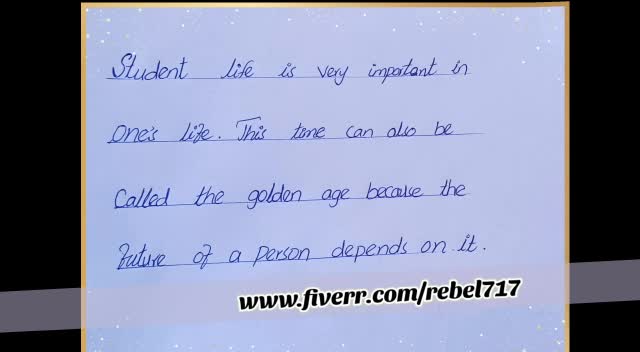 Student life is very important in
One's life. This time can also be
Called the golden age because the
future of a person depends on it.
www.fiverr.com/rebel717